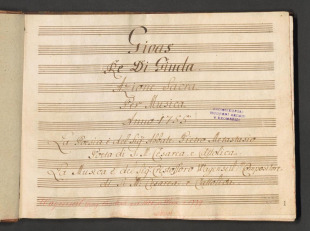 Gioas
Rè Di Giuda.
Azione Sacra
Per Musica
Anno 1755
La Poesia è del Sig. Abbate Pietro Metastasio
Poeta di S. M. Cesarea, e Cattolica.
La Musica è del Sig. Cristofforo Wagenseil Compositore
di S. M. Cesarea, e Cattolica.
1